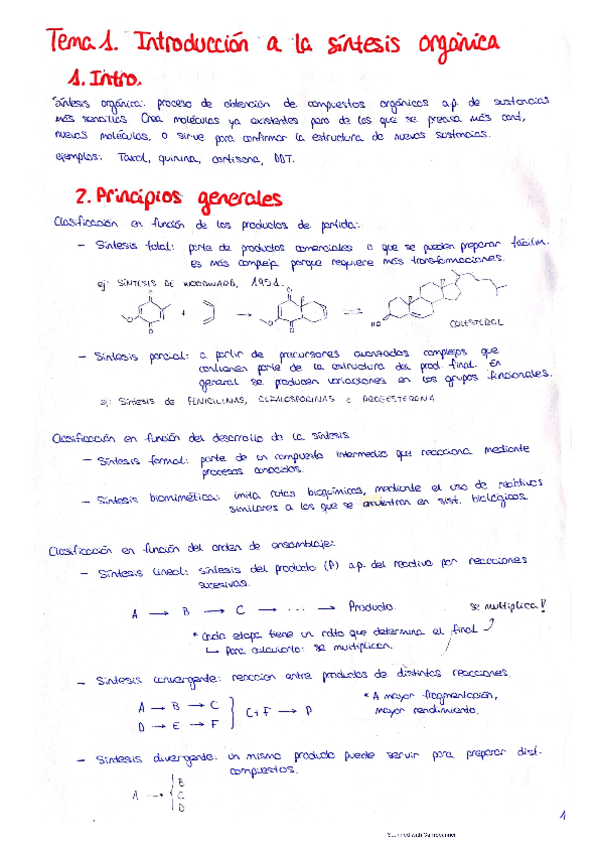 Tema 1. Introducción a la síntesis orgánica
1. Intro.
Síntesis orgánica: proceso de obtención de compuestos orgánicos a.p. de sustancias
más sencillas. Crea moléculas ya existentes pero de las que se precisa más cant,
nuevas moléculas, o sirve para confirmar la estructura de nuevas sustancias.
ejemplos: Taxol, quinina, cortisona, DDT.
2. Principios generales
Clasificación en función de los productos de partida:
- Síntesis total: parte de productos comerciales o que se pueden preparar fácilm.
Es más compleja porque requiere más transformaciones.
ej: SÍNTESIS DE WOODWARD, 1951.
O
O
O
+
→
O
O
O
HO
COLESTEROL
- Síntesis parcial: a partir de precursores avanzados complejos que
contienen parte de la estructura del prod. final. En
general se producen variaciones en los grupos funcionales.
ej: Síntesis de PENICILINAS, CEFALOSPORINAS o PROGESTERONA
Clasificación en función del desarrollo de la síntesis
- Síntesis formal: parte de un compuesto intermedio que reacciona mediante
procesos conocidos.
- Síntesis biomimética: imita rutas bioquímicas, mediante el uso de reactivos
similares a los que se encuentran en sist. biológicos.
Clasificación en función del orden de ensamblaje:
- Síntesis lineal: síntesis del producto (P) a.p. del reactivo por reacciones
sucesivas.
A → B → C → ... → Producto.
se multiplica!
* Cada etapa tiene un rdto que determina el final
↳ Para calcularlo: se multiplican.
- Síntesis convergente: reacción entre productos de distintas reacciones.
A → B → C
D → E → F
C+F → P
* A mayor fragmentación,
mayor rendimiento.
- Síntesis divergente: un mismo producto puede servir para preparar dist.
compuestos.
A →
B
C
D
1
Scanned with CamScanner